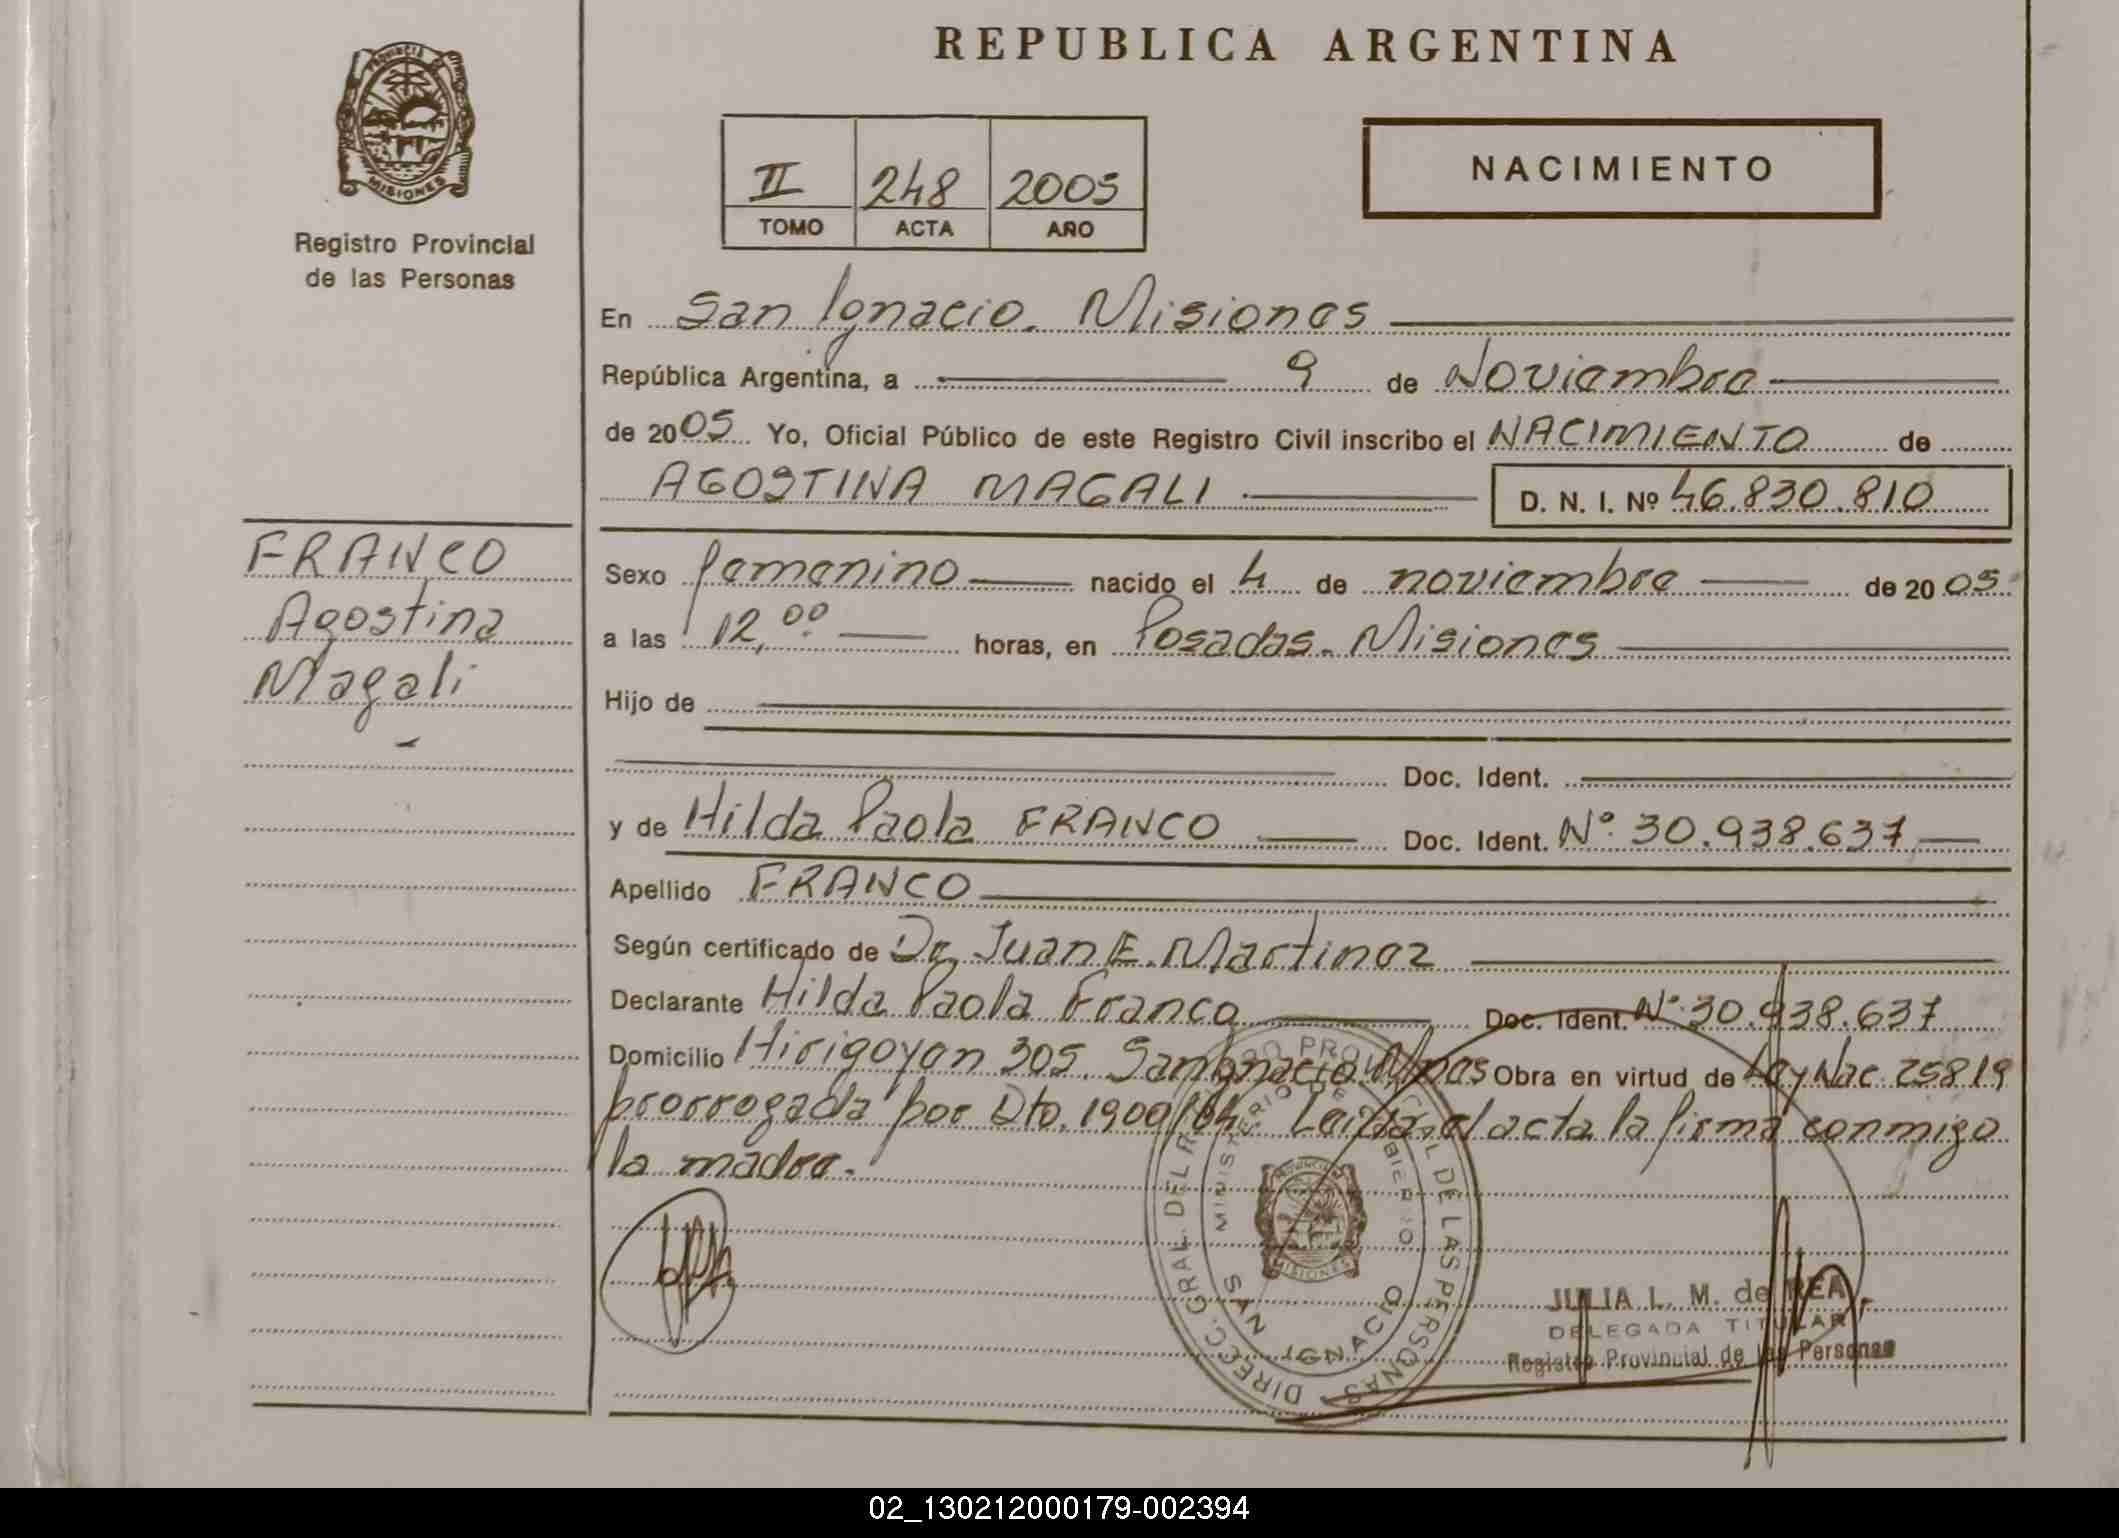 REPUBLICA ARGENTINA
PROVINCIA DE
MISIONES
Registro Provincial
de las Personas
II 248 2005
TOMO ACTA AÑO
NACIMIENTO
En San Ignacio. Misiones
República Argentina, a 9 de Noviembre
de 2005 Yo, Oficial Público de este Registro Civil inscribo el NACIMIENTO de
AGOSTINA MAGALI D. N. I. Nº 46.830.810
FRANCO
Agostina
Magali
Sexo femenino nacido el 4 de noviembre de 2005
a las 12,00 horas, en Posadas. Misiones
Hijo de
Doc. Ident.
y de Hilda Paola FRANCO Doc. Ident. Nº 30.938.637
Apellido FRANCO
Según certificado de Dr. Juan E. Martinez
Declarante Hilda Paola Franco Doc. Ident. Nº 30.938.637
Domicilio Hirigoyen 305. San Ignacio. Mnes Obra en virtud de Ley Nac. 25819
prorrogada por Dto. 1900/04. Leida el acta la firma conmigo
la madre.
DIRECC. GRAL. DEL REGISTRO PROVINCIAL DE LAS PERSONAS
MINISTERIO DE GOBIERNO
MISIONES
SAN IGNACIO
JULIA L. M. de REA
DELEGADA TITULAR
Registro Provincial de las Personas
02_130212000179-002394